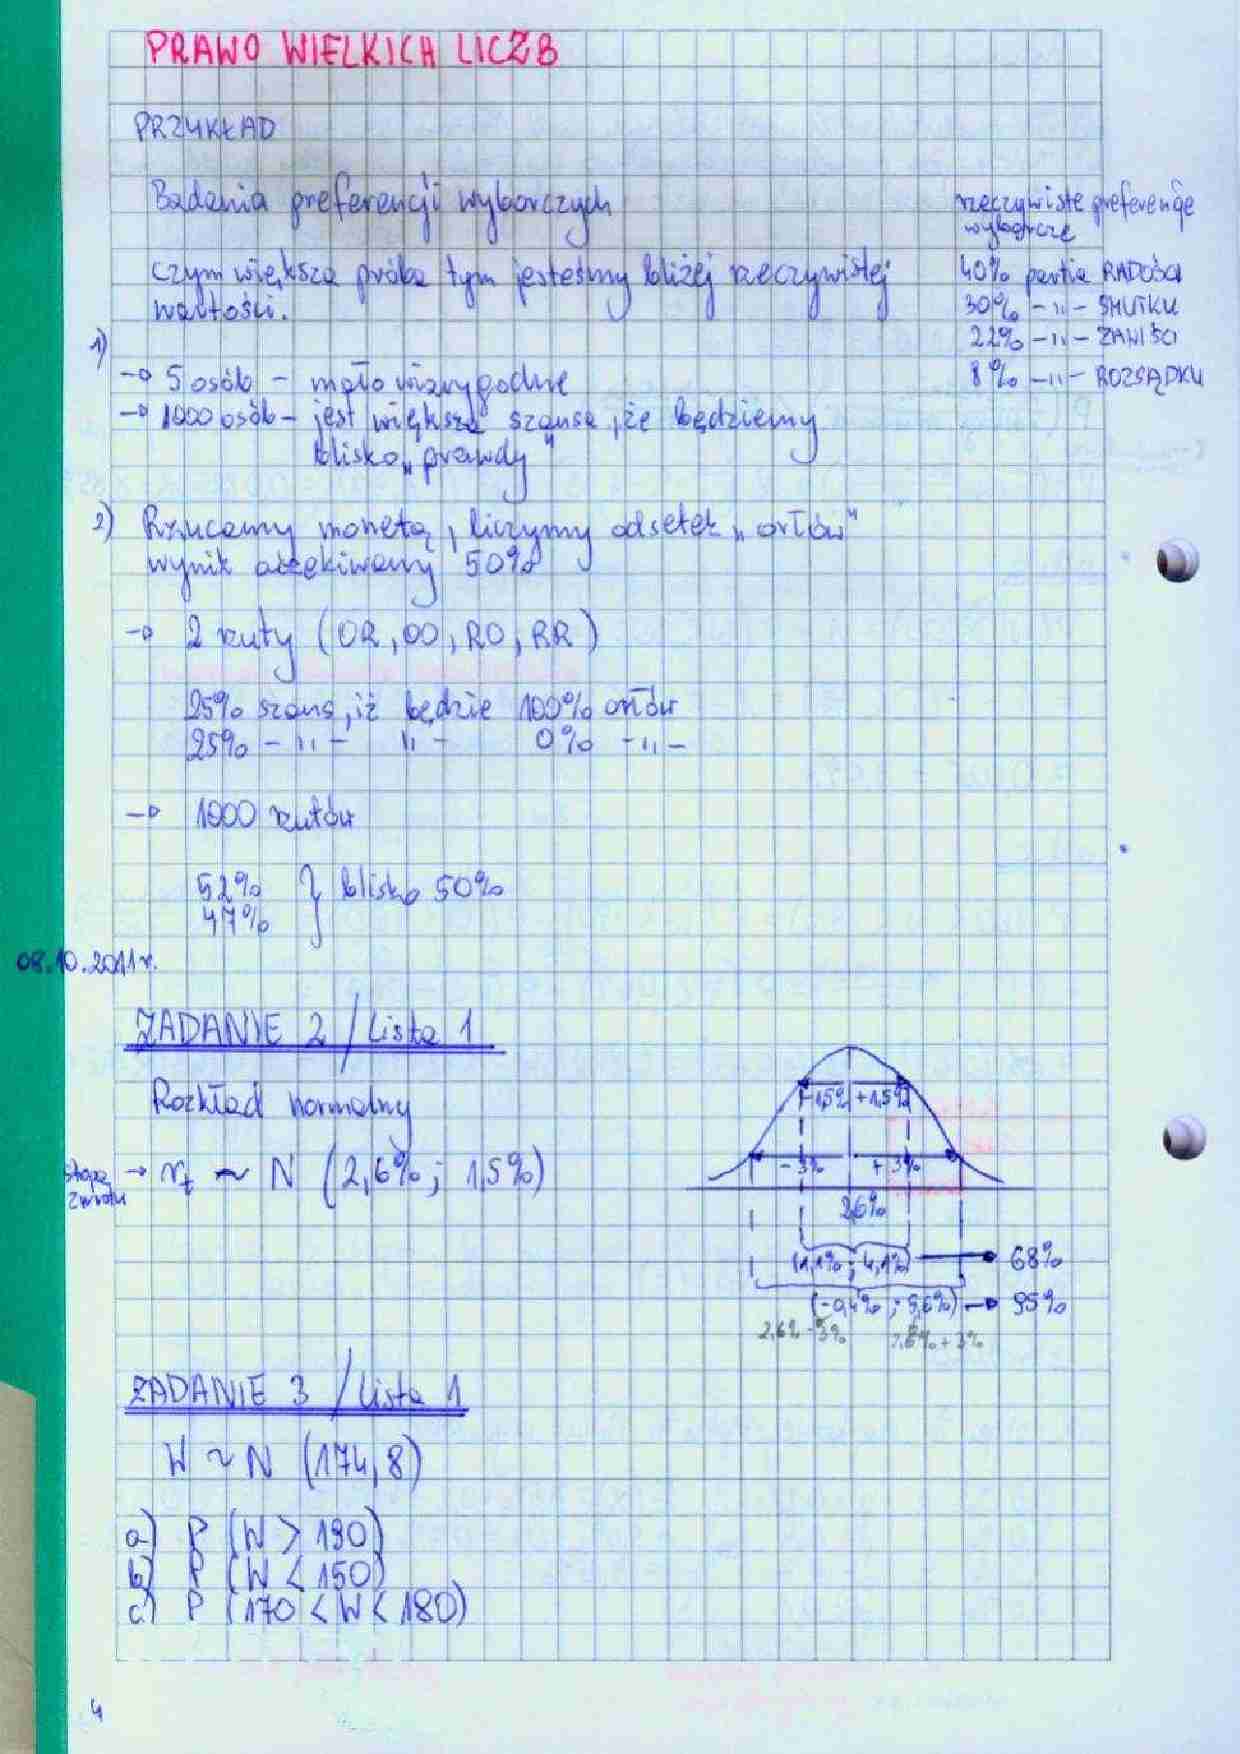 PRAWO WIELKICH LICZB
PRZYKŁAD
Badania preferencji wyborczych
czym większa próba tym jesteśmy bliżej rzeczywistej
wartości.
rzeczywiste preferencje
wyborcze
40% partia RADOŚCI
30% -"- SMUTKU
22% -"- ZAWIŚCI
8% -"- ROZSĄDKU
1)
→ 5 osób - mało wiarygodne
→ 1000 osób - jest większa szansa, że będziemy
blisko „prawdy"
2) Rzucamy monetą, liczymy odsetek „orłów"
wynik oczekiwany 50%
→ 2 rzuty (OR, OO, RO, RR)
25% szans, iż będzie 100% orłów
25% -"- "- 0% -"-
→ 1000 rzutów
52% } blisko 50%
47%
08.10.2011r.
ZADANIE 2 / Lista 1
Rozkład normalny
stopa
zwrotu
→ rt ~ N (2,6%; 1,5%)
-1,5% +1,5%
-3% +3%
2,6%
(1,1% ; 4,1%) → 68%
(-0,4% ; 5,6%) → 95%
2,6% - 3% 2,6% + 3%
ZADANIE 3 / Lista 1
W ~ N (174, 8)
a) P (W > 190)
b) P (W < 150)
c) P (170 < W < 180)
4